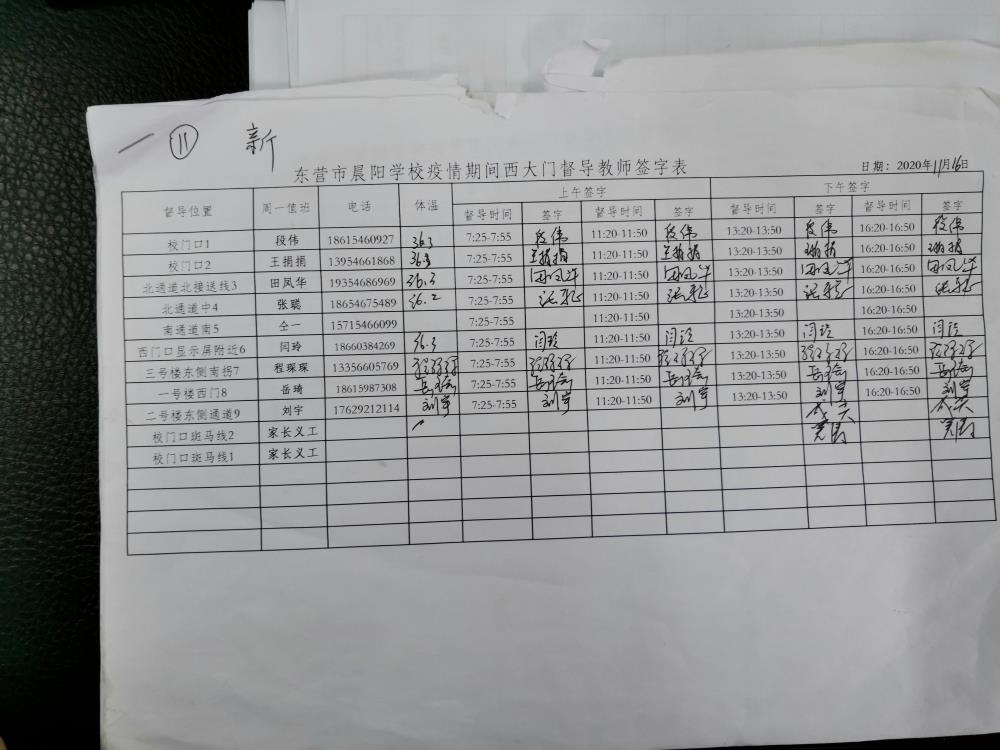 ⑪ 新
东营市晨阳学校疫情期间西大门督导教师签字表
日期：2020年11月16日
督导位置 周一值班 电话 体温 上午签字 下午签字
督导时间 签字 督导时间 签字 督导时间 签字 督导时间 签字
校门口1 段伟 18615460927 36.3 7:25-7:55 段伟 11:20-11:50 段伟 13:20-13:50 段伟 16:20-16:50 段伟
校门口2 王捐捐 13954661868 36.3 7:25-7:55 王捐捐 11:20-11:50 王捐捐 13:20-13:50 16:20-16:50
北通道北接送线3 田凤华 19354686969 36.3 7:25-7:55 田凤华 11:20-11:50 田凤华 13:20-13:50 田凤华 16:20-16:50 田凤华
北通道中4 张聪 18654675489 36.2 7:25-7:55 11:20-11:50 13:20-13:50 16:20-16:50
南通道南5 仝一 15715466099 7:25-7:55 11:20-11:50 13:20-13:50 16:20-16:50
西门口显示屏附近6 闫玲 18660384269 36.3 7:25-7:55 闫玲 11:20-11:50 闫玲 13:20-13:50 闫玲 16:20-16:50 闫玲
三号楼东侧南拐7 程琛琛 13356605769 程琛琛 7:25-7:55 程琛琛 11:20-11:50 程琛琛 13:20-13:50 程琛琛 16:20-16:50 程琛琛
一号楼西门8 岳琦 18615987308 岳琦 7:25-7:55 岳琦 11:20-11:50 岳琦 13:20-13:50 岳琦 16:20-16:50 岳琦
二号楼东侧通道9 刘宇 17629212114 刘宇 7:25-7:55 刘宇 11:20-11:50 刘宇 13:20-13:50 刘宇 16:20-16:50 刘宇
校门口斑马线2 家长义工
校门口斑马线1 家长义工